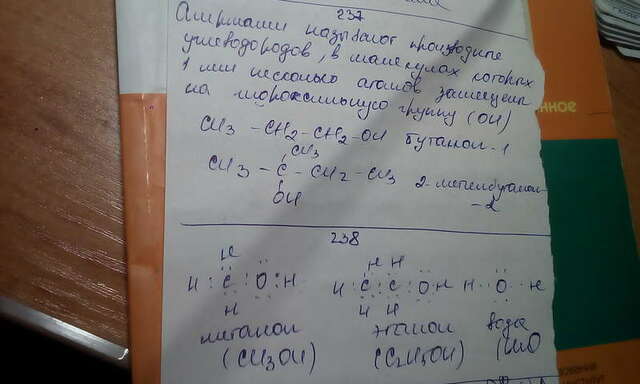 237
Спиртами называют производные
углеводородов, в молекулах которых
1 или несколько атомов замещены
на гидроксильную группу (OH)
CH3 - CH2 - CH2 - OH бутанол-1
CH3
CH3 - C - CH2 - CH3 2-метилбутанол
OH -2
238
H H H
H : C : O : H H : C : C : O : H H : O : H
H H H
метанол этанол вода
(CH3OH) (C2H5OH) (H2O
нное